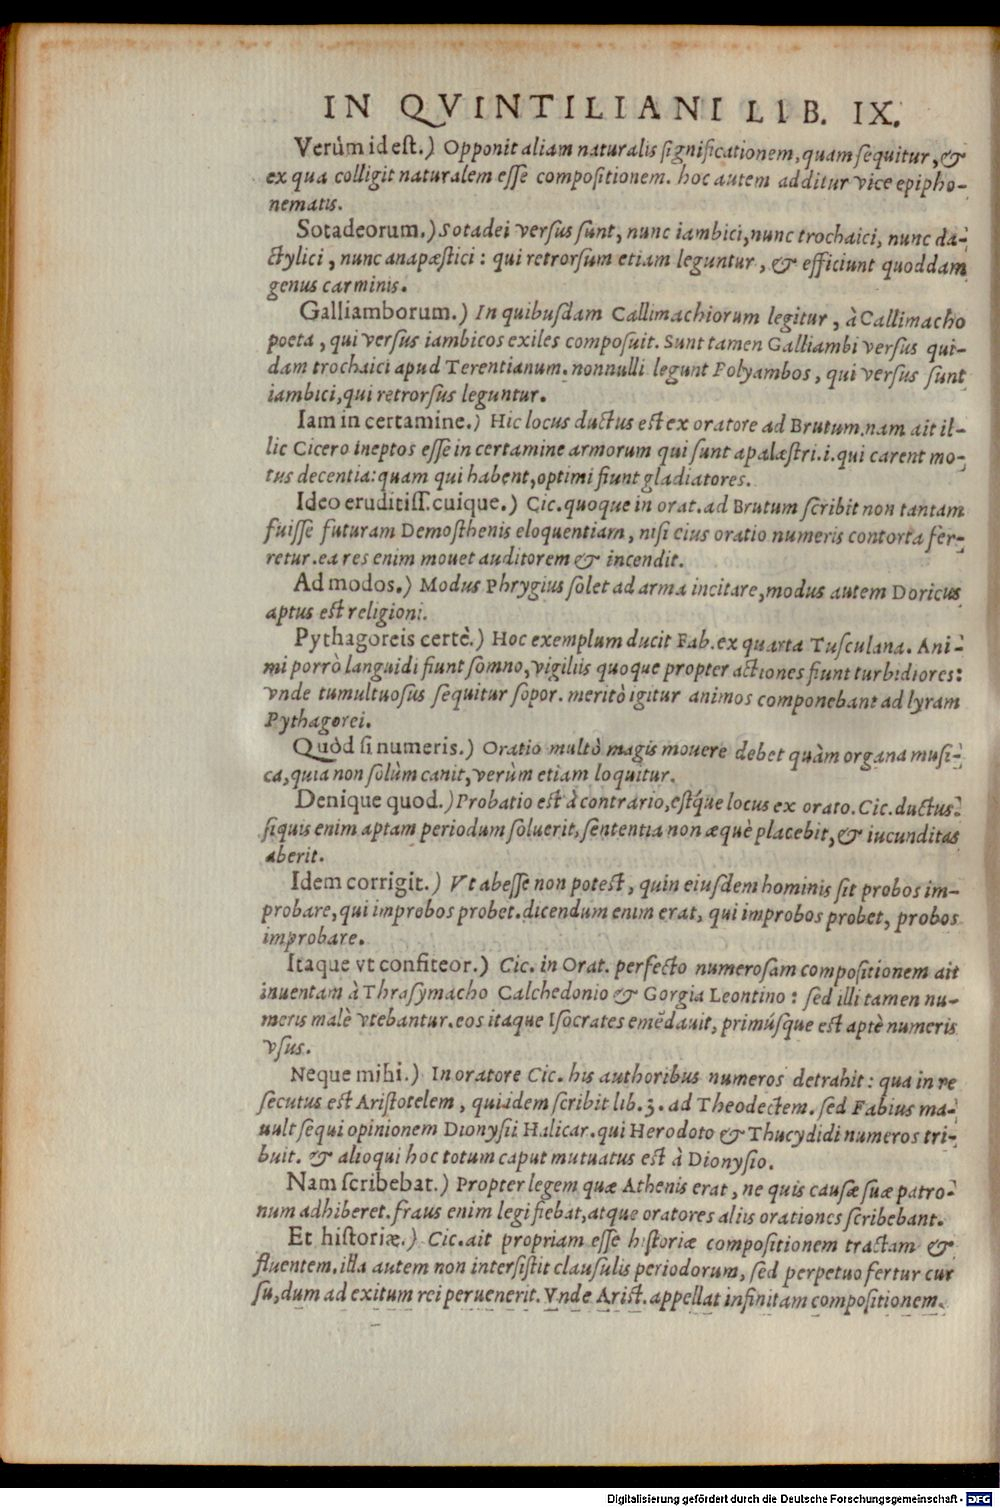 IN QVINTILIANI LIB. IX.
Verùm id est.) Opponit aliam naturalis significationem, quam sequitur, &
ex qua colligit naturalem esse compositionem. hoc autem additur vice epipho-
nematis.
Sotadeorum.) Sotadei versus sunt, nunc iambici, nunc trochaici, nunc da-
ctylici, nunc anapæstici: qui retrorsum etiam leguntur, & efficiunt quoddam
genus carminis.
Galliamborum.) In quibusdam Callimachiorum legitur, à Callimacho
poeta, qui versus iambicos exiles composuit. Sunt tamen Galliambi versus qui-
dam trochaici apud Terentianum. nonnulli legunt Polyambos, qui versus sunt
iambici, qui retrorsus leguntur.
Iam in certamine.) Hic locus ductus est ex oratore ad Brutum. nam ait il-
lic Cicero ineptos esse in certamine armorum qui sunt apalæstri. i. qui carent mo-
tus decentia: quam qui habent, optimi fiunt gladiatores.
Ideo eruditiss. cuique.) Cic. quoque in orat. ad Brutum scribit non tantam
fuisse futuram Demosthenis eloquentiam, nisi eius oratio numeris contorta fer-
retur. ea res enim mouet auditorem & incendit.
Ad modos.) Modus Phrygius solet ad arma incitare, modus autem Doricus
aptus est religioni.
Pythagoreis certè.) Hoc exemplum ducit Fab. ex quarta Tusculana. Ani-
mi porrò languidi fiunt somno, vigiliis quoque propter actiones fiunt turbidiores:
vnde tumultuosus sequitur sopor. meritò igitur animos componebant ad lyram
Pythagorei.
Quòd si numeris.) Oratio multò magis mouere debet quàm organa musi-
ca, quia non solùm canit, verùm etiam loquitur.
Denique quod.) Probatio est à contrario, estq́ue locus ex orato. Cic. ductus.
siquis enim aptam periodum soluerit, sententia non æquè placebit, & iucunditas
aberit.
Idem corrigit.) Vt abesse non potest, quin eiusdem hominis sit probos im-
probare, qui improbos probet. dicendum enim erat, qui improbos probet, probos
improbare.
Itaque vt confiteor.) Cic. in Orat. perfecto numerosam compositionem ait
inuentam à Thrasymacho Calchedonio & Gorgia Leontino: sed illi tamen nu-
meris malè vtebantur. eos itaque Isocrates emēdauit, primúsque est aptè numeris
vsus.
Neque mihi.) In oratore Cic. his authoribus numeros detrahit: qua in re
secutus est Aristotelem, qui idem scribit lib. 3. ad Theodectem. sed Fabius ma-
uult sequi opinionem Dionysii Halicar. qui Herodoto & Thucydidi numeros tri-
buit. & alioqui hoc totum caput mutuatus est à Dionysio.
Nam scribebat.) Propter legem quæ Athenis erat, ne quis causæ suæ patro-
num adhiberet. fraus enim legi fiebat, atque oratores aliis orationes scribebant.
Et historiæ.) Cic. ait propriam esse historiæ compositionem tractam &
fluentem. illa autem non intersistit clausulis periodorum, sed perpetuo fertur cur
su, dum ad exitum rei peruenerit. Vnde Arist. appellat infinitam compositionem.
Digitalisierung gefördert durch die Deutsche Forschungsgemeinschaft - DFG